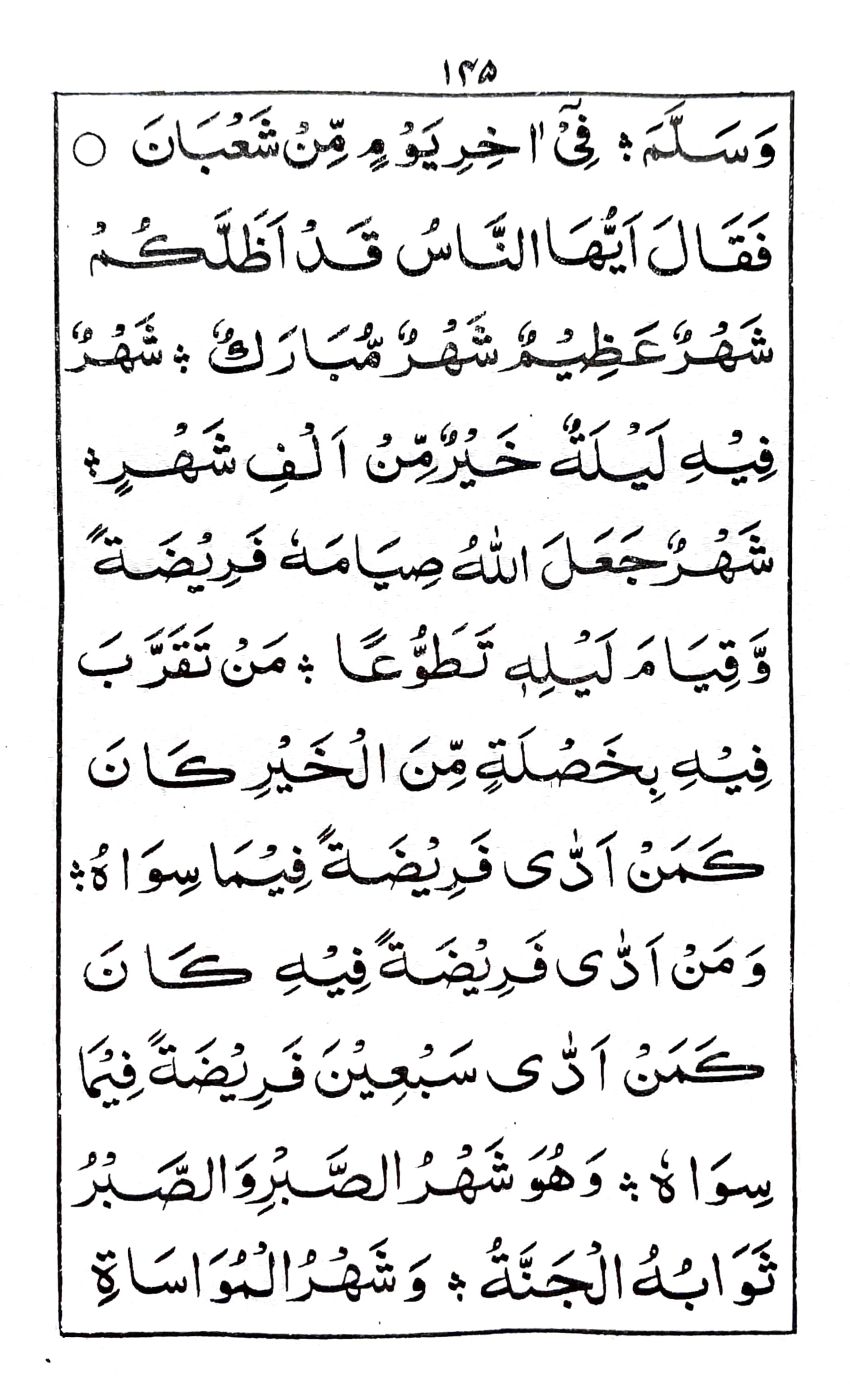 ۱۴۵
وَسَلَّمَ ؞ فِیْۤ اٰخِرِ یَوْمٍ مِّنْ شَعْبَانَ ○
فَقَالَ اَیُّهَا النَّاسُ قَدْ اَظَلَّكُمْ
شَهْرٌ عَظِیْمٌ شَهْرٌ مُّبَارَكٌ ؞ شَهْرٌ
فِیْهِ لَیْلَةٌ خَیْرٌ مِّنْ اَلْفِ شَهْرٍ ؞
شَهْرٌ جَعَلَ اللّٰهُ صِیَامَهٗ فَرِیْضَةً
وَّقِیَامَ لَیْلِهٖ تَطَوُّعًا ؞ مَنْ تَقَرَّبَ
فِیْهِ بِخَصْلَةٍ مِّنَ الْخَیْرِ كَانَ
كَمَنْ اَدّٰى فَرِیْضَةً فِیْمَا سِوَاهُ ؞
وَمَنْ اَدّٰى فَرِیْضَةً فِیْهِ كَانَ
كَمَنْ اَدّٰى سَبْعِیْنَ فَرِیْضَةً فِیْمَا
سِوَاهٗ ؞ وَهُوَ شَهْرُ الصَّبْرِ وَالصَّبْرُ
ثَوَابُهُ الْجَنَّةُ ؞ وَشَهْرُ الْمُوَاسَاةِ